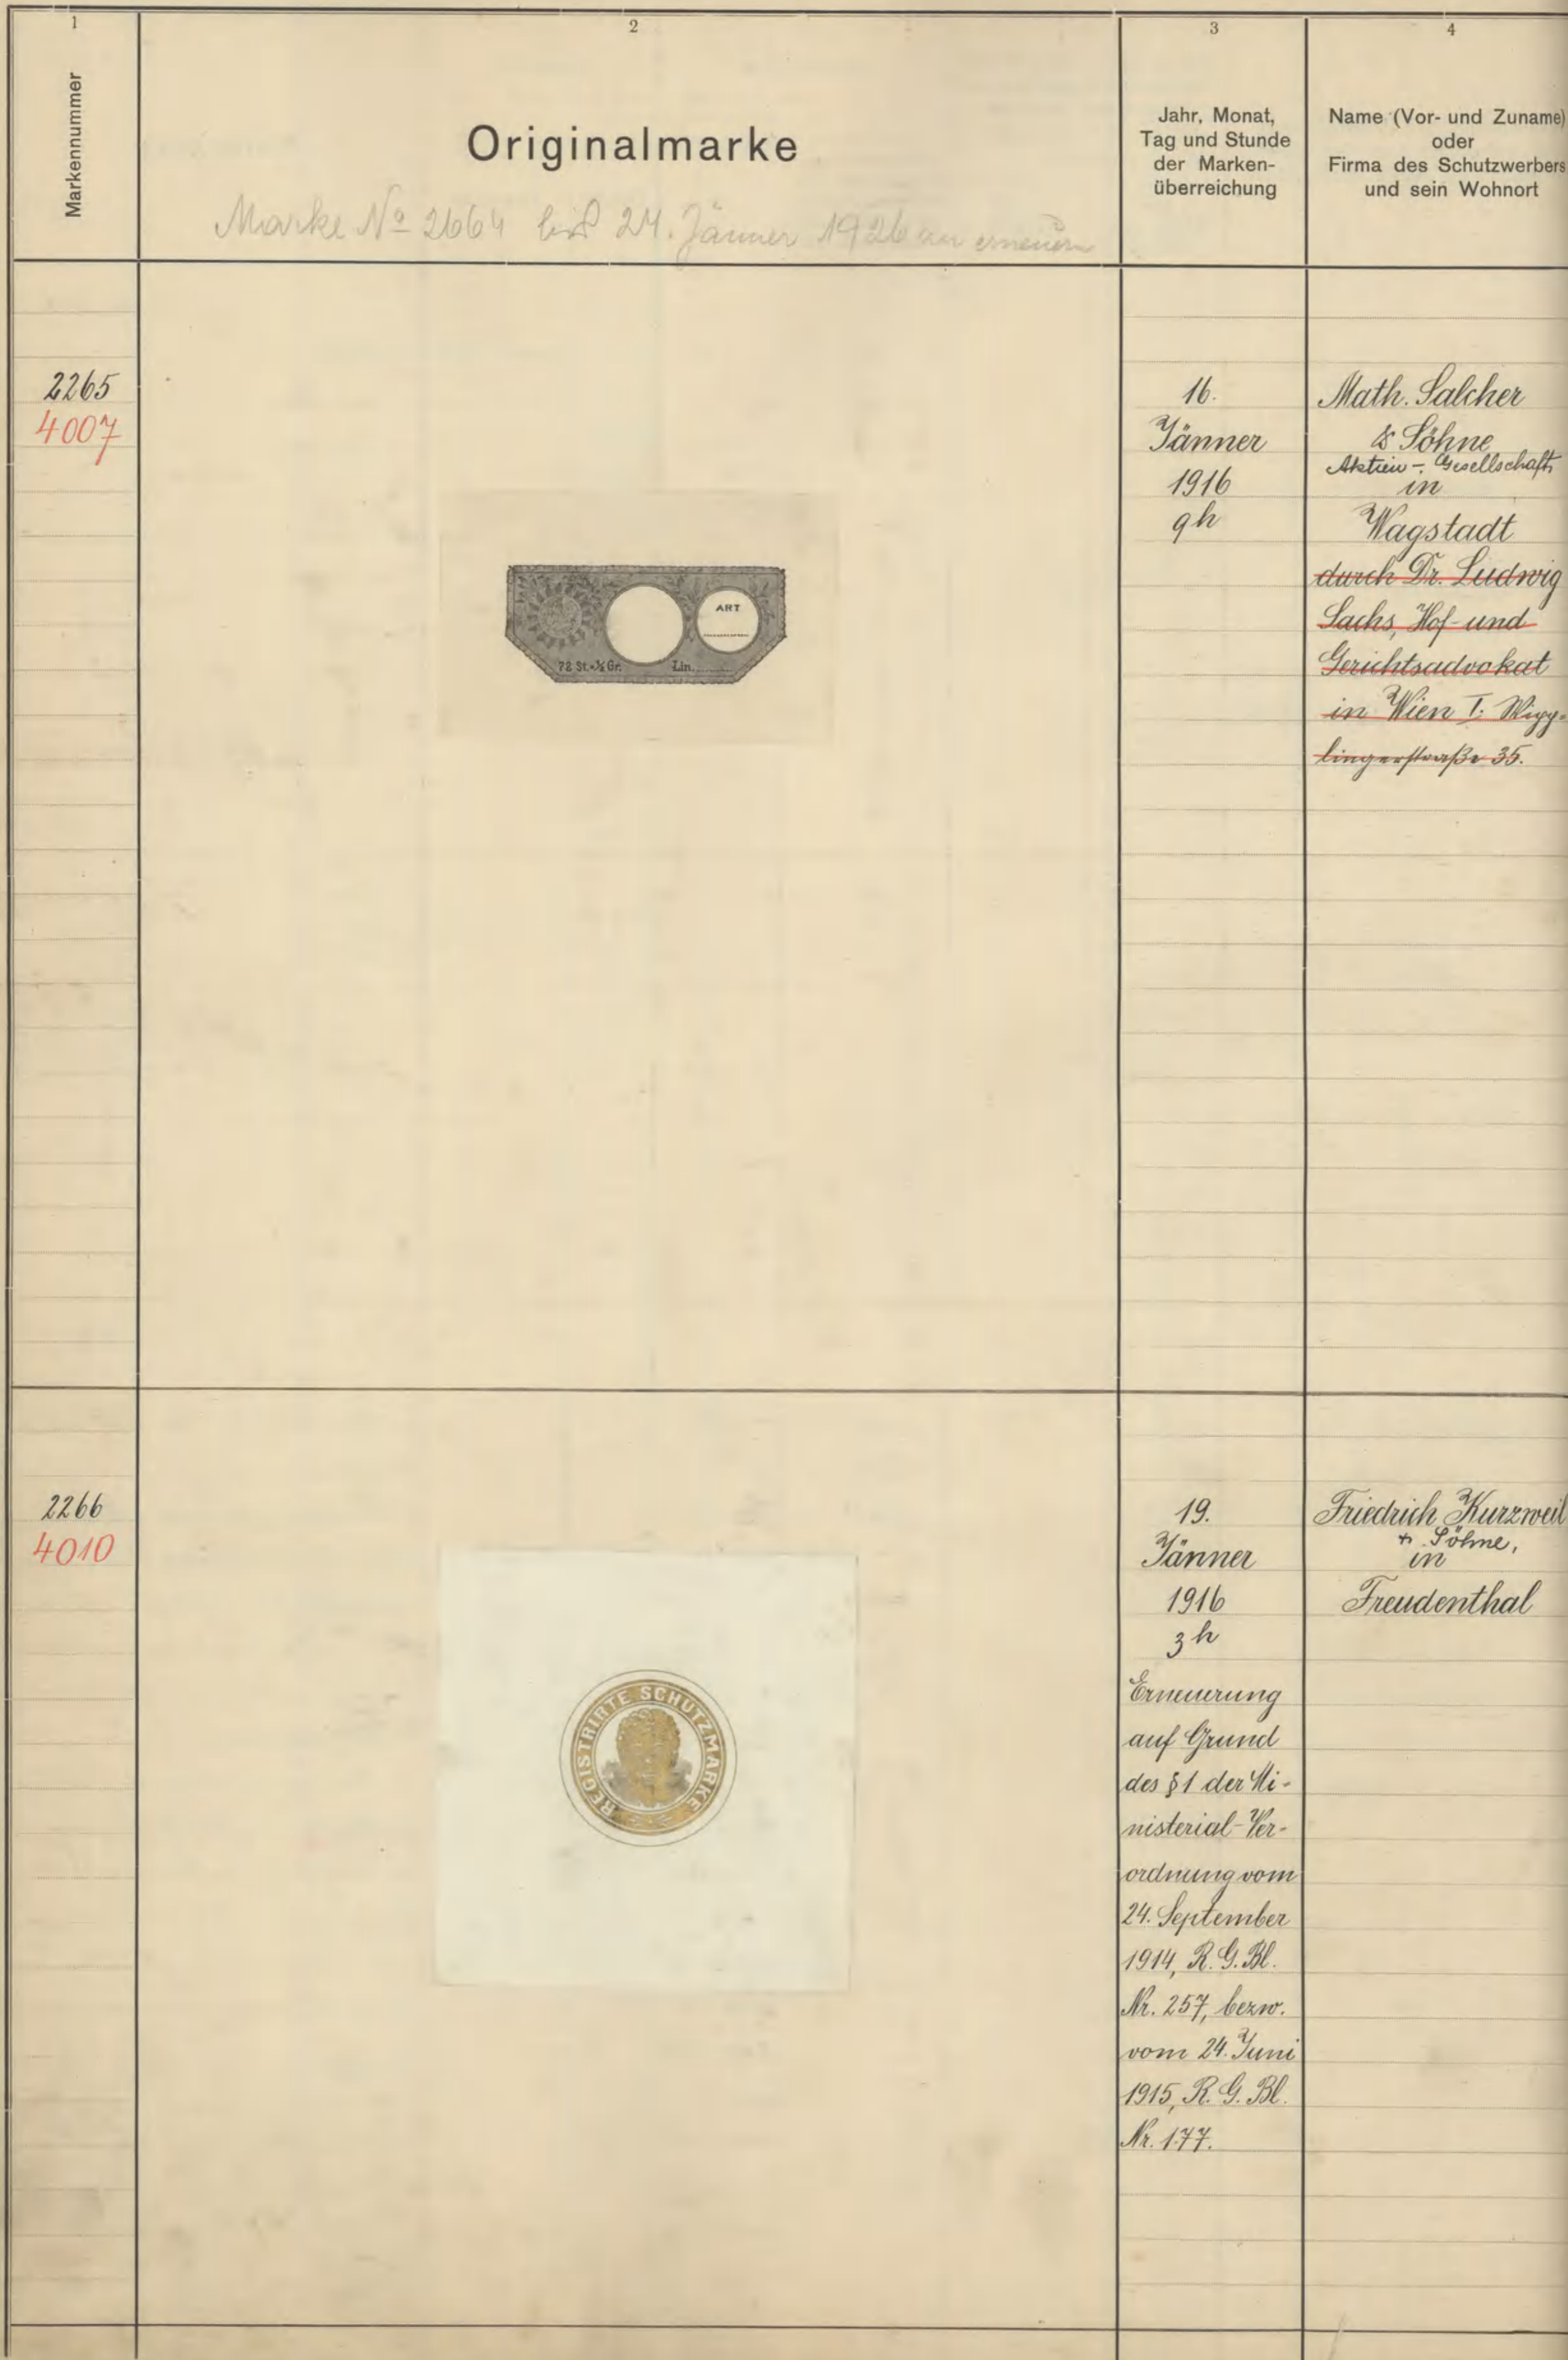 1
Markennummer
2
Originalmarke
Marke № 2664 bis 24. Jänner 1926 zu erneuern
3
Jahr, Monat,
Tag und Stunde
der Marken-
überreichung
4
Name (Vor- und Zuname)
oder
Firma des Schutzwerbers
und sein Wohnort
2265
4007
ART
72 St.=½ Gr.
Lin.
16.
Jänner
1916
9h
Math. Salcher
& Söhne
Aktien-Gesellschaft
in
Wagstadt
durch Dr. Ludwig
Sachs, Hof- und
Gerichtsadvokat
in Wien I. Wipp-
lingerstraße 35.
2266
4010
REGISTRIRTE SCHUTZMARKE
19.
Jänner
1916
3h
Erneuerung
auf Grund
des § 1 der Mi-
nisterial-Ver-
ordnung vom
24. September
1914, R. G. Bl.
Nr. 257, bezw.
vom 24. Juni
1915, R. G. Bl.
Nr. 177.
Friedrich Kurzweil
& Söhne,
in
Freudenthal